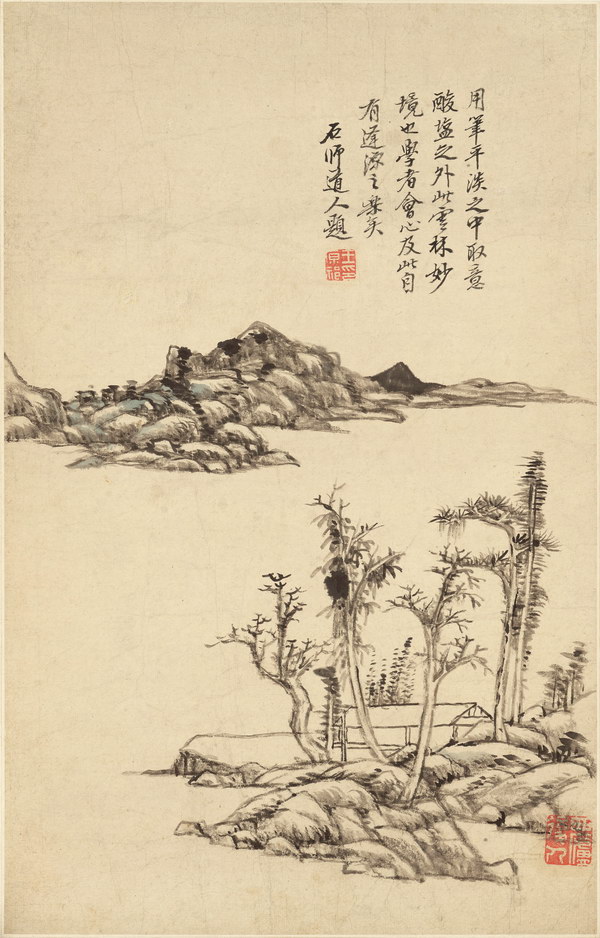 用筆平淡之中取意
酸塩之外此雲林妙
境也學者會心及此自
有逢源之樂矣
石師道人題